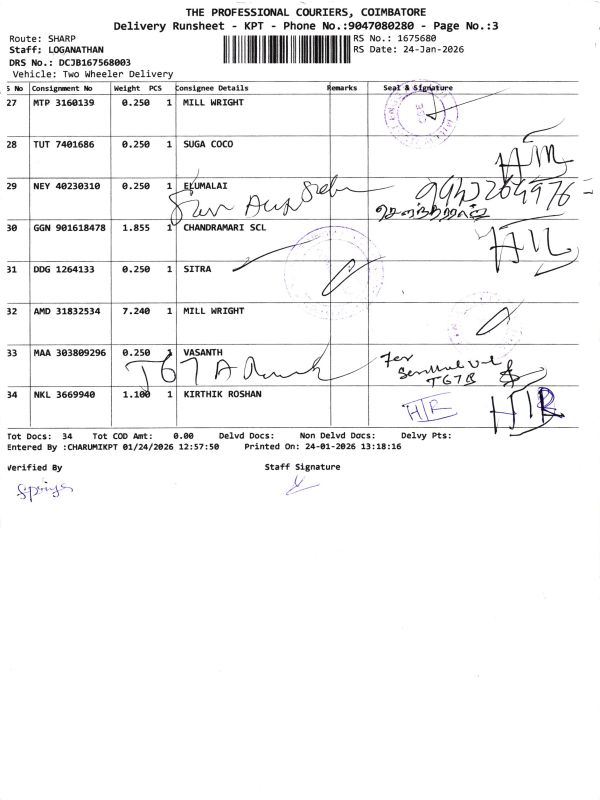 THE PROFESSIONAL COURIERS, COIMBATORE
Delivery Runsheet - KPT - Phone No.:9047080280 - Page No.:3
Route: SHARP RS No.: 1675680
Staff: LOGANATHAN RS Date: 24-Jan-2026
DRS No.: DCJB167568003
Vehicle: Two Wheeler Delivery
S No Consignment No Weight PCS Consignee Details Remarks Seal & Signature
27 MTP 3160139 0.250 1 MILL WRIGHT
28 TUT 7401686 0.250 1 SUGA COCO
29 NEY 40230310 0.250 1 ELUMALAI
30 GGN 901618478 1.855 1 CHANDRAMARI SCL
31 DDG 1264133 0.250 1 SITRA
32 AMD 31832534 7.240 1 MILL WRIGHT
33 MAA 303809296 0.250 1 VASANTH
T67B
34 NKL 3669940 1.100 1 KIRTHIK ROSHAN
Tot Docs: 34 Tot COD Amt: 0.00 Delvd Docs: Non Delvd Docs: Delvy Pts:
Entered By :CHARUMIKPT 01/24/2026 12:57:50 Printed On: 24-01-2026 13:18:16
Verified By Staff Signature